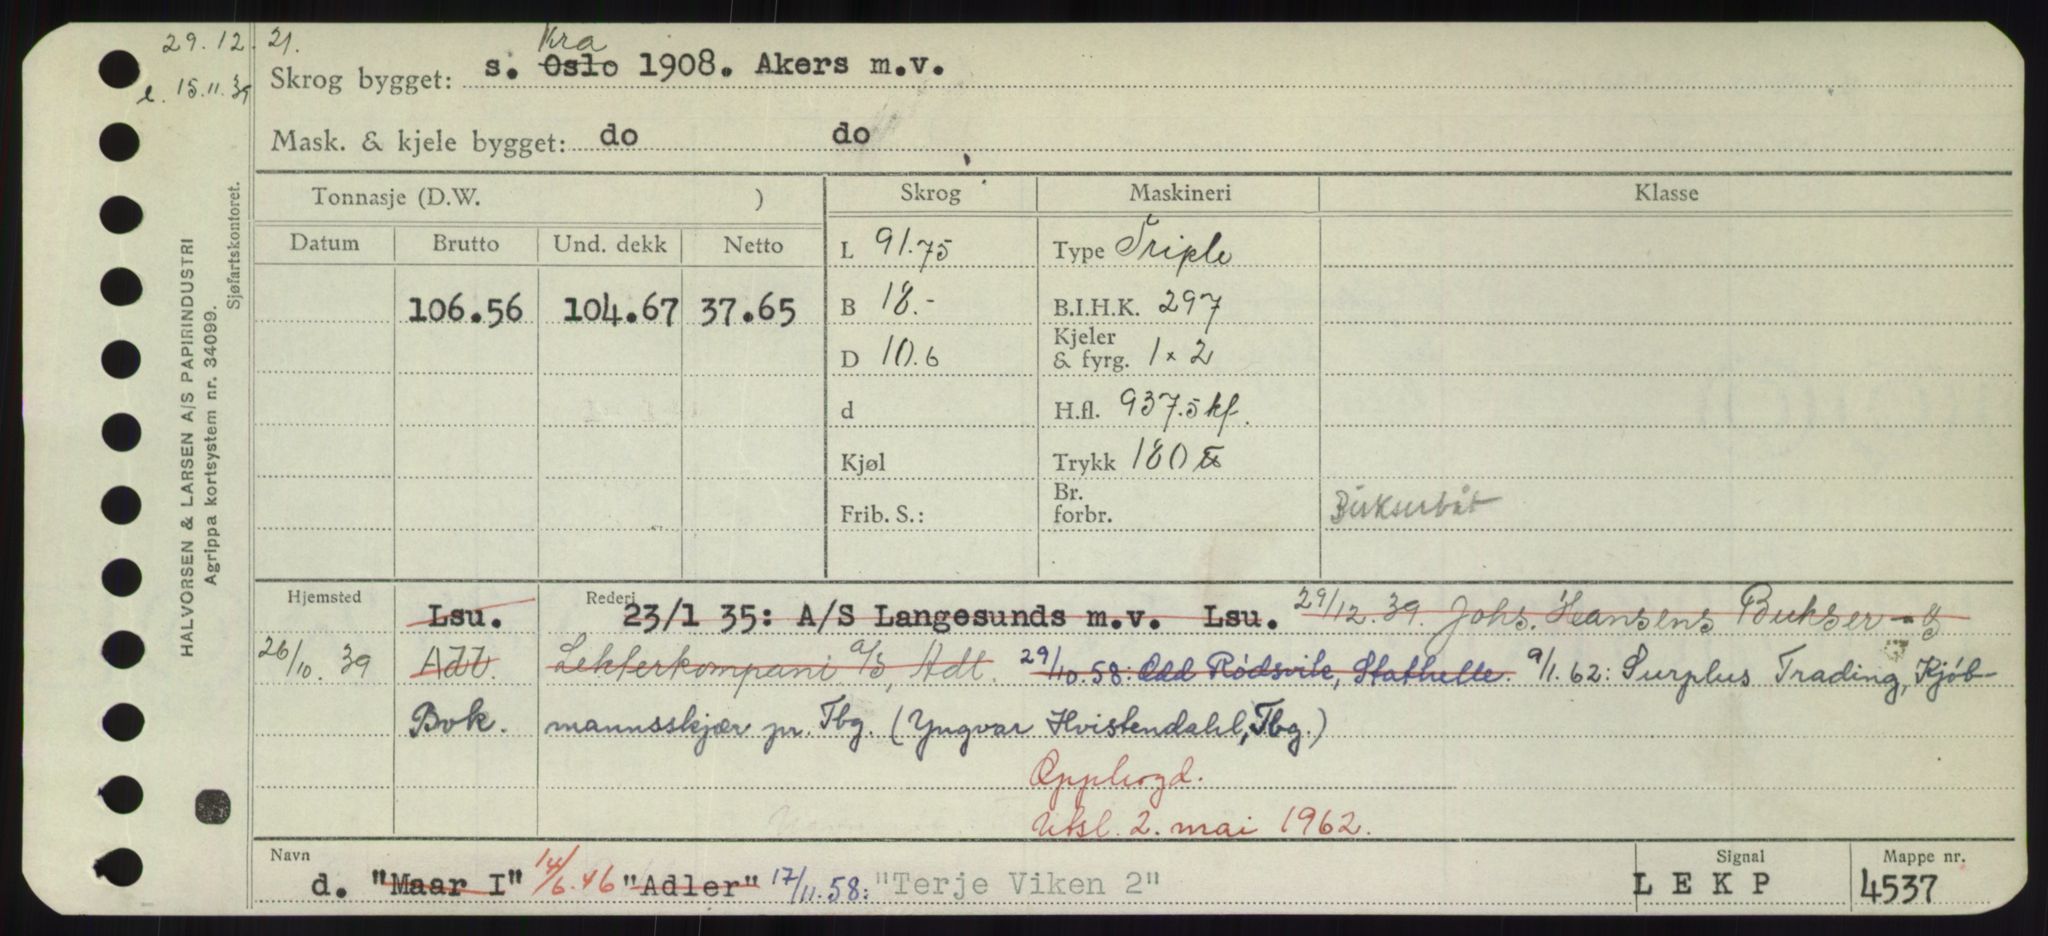 29.12.21.
e. 15.11.39
Kra
Skrog bygget: s. Oslo 1908. Akers m.v.
Mask. & kjele bygget: do do
Tonnasje (D.W. ) Skrog Maskineri Klasse
Datum Brutto Und. dekk Netto
L 91.75 Type Triple
106.56 104.67 37.65 B 18.- B.I.H.K. 297
D 10.6 Kjeler & fyrg. 1 x 2
d H.fl. 937.5 kf.
Kjøl Trykk 180
Frib. S.: Br. forbr. Bukserbåt
Hjemsted Rederi
Lsu. 23/1 35: A/S Langesunds m.v. Lsu. 29/12.39. Johs. Hansens Bukser- &
26/10.39 Adl. Lekterkompani a/s, Adl. 29/10.58: Odd Rødsvik, Stathelle. 9/1.62: Surplus Trading, Kjøb-
Bvk. mannsskjær pr. Tbg. (Yngvar Hvistendahl, Tbg.)
Opphogd.
Utsl. 2. mai 1962.
Navn Signal Mappe nr.
d. "Maar I" 14/6.46 "Adler" 17/11.58: "Terje Viken 2" L E K P 4537
HALVORSEN & LARSEN A/S PAPIRINDUSTRI
Agrippa kortsystem nr. 34099.
Sjøfartskontoret.